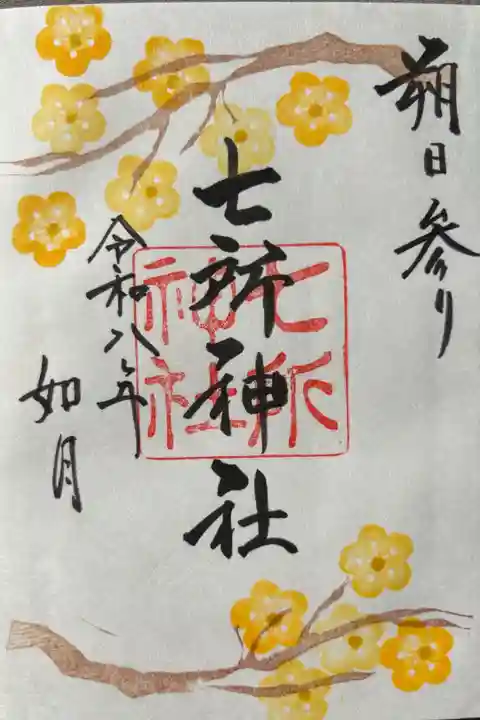 朔日参り
七所神社
七所
神社
令和八年
如月